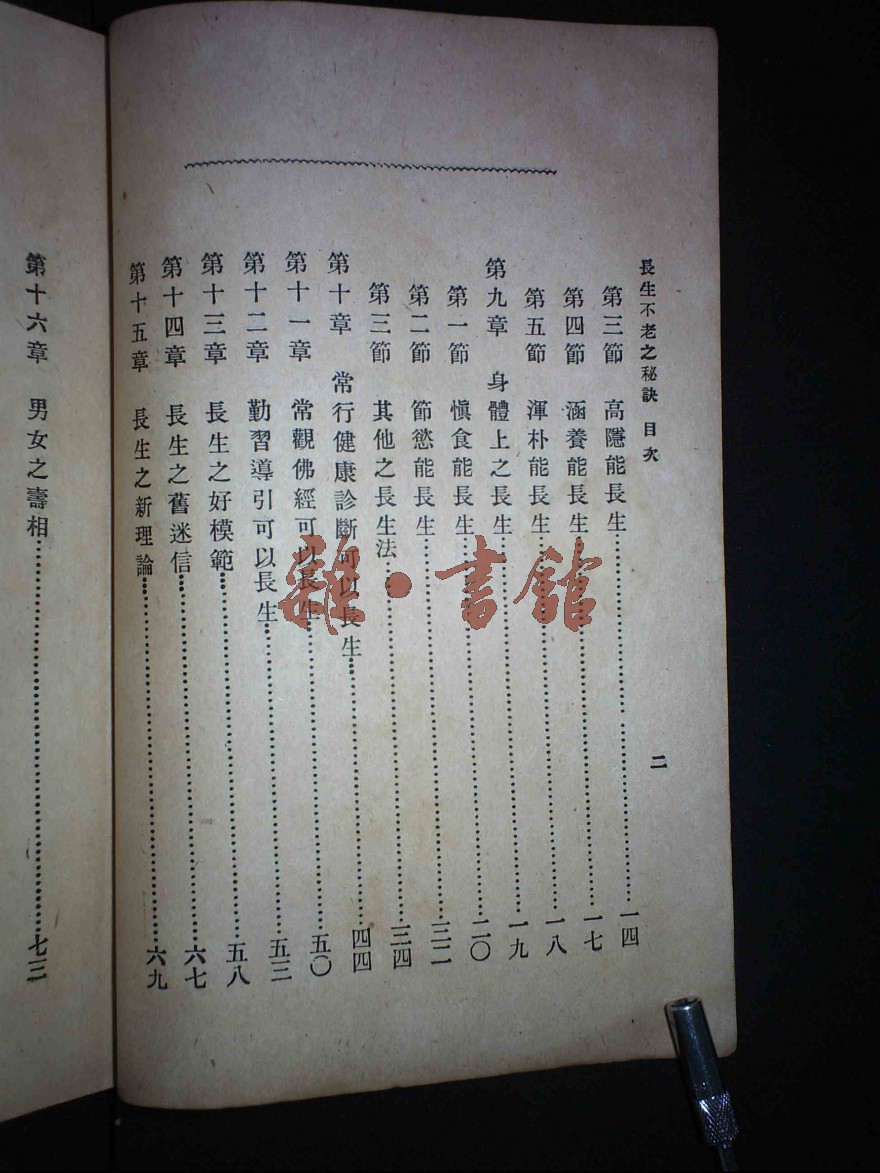 長生不老之秘訣 目次 二
第三節 高隱能長生……………一四
第四節 涵養能長生……………一七
第五節 渾朴能長生……………一八
第九章 身體上之長生……………一九
第一節 愼食能長生……………二〇
第二節 節慾能長生……………三二
第三節 其他之長生法……………三四
第十章 常行健康診斷可以長生……………四四
第十一章 常觀佛經可以長生……………五〇
第十二章 勤習導引可以長生……………五三
第十三章 長生之好模範……………五八
第十四章 長生之舊迷信……………六七
第十五章 長生之新理論……………六九
第十六章 男女之壽相……………七三
雜·書館